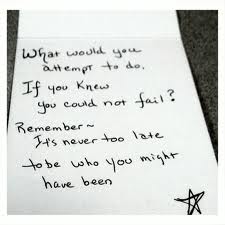 What would you
attempt to do.
If you knew
you could not fail?
Remember~
It's never too late
to be who you might
have been